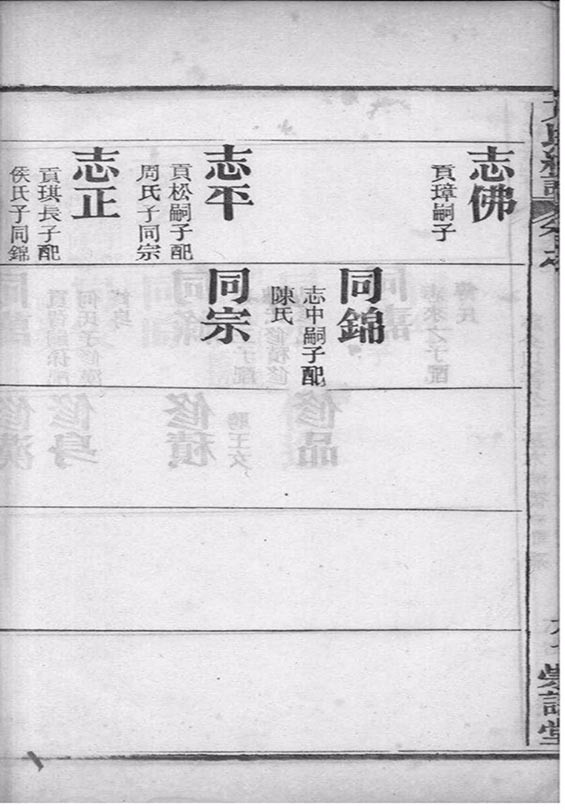 志佛
貢璋嗣子
志平
貢松嗣子配
周氏子同宗
志正
貢琪長子配
侯氏子同錦
同錦
志中嗣子配
陳氏
同宗